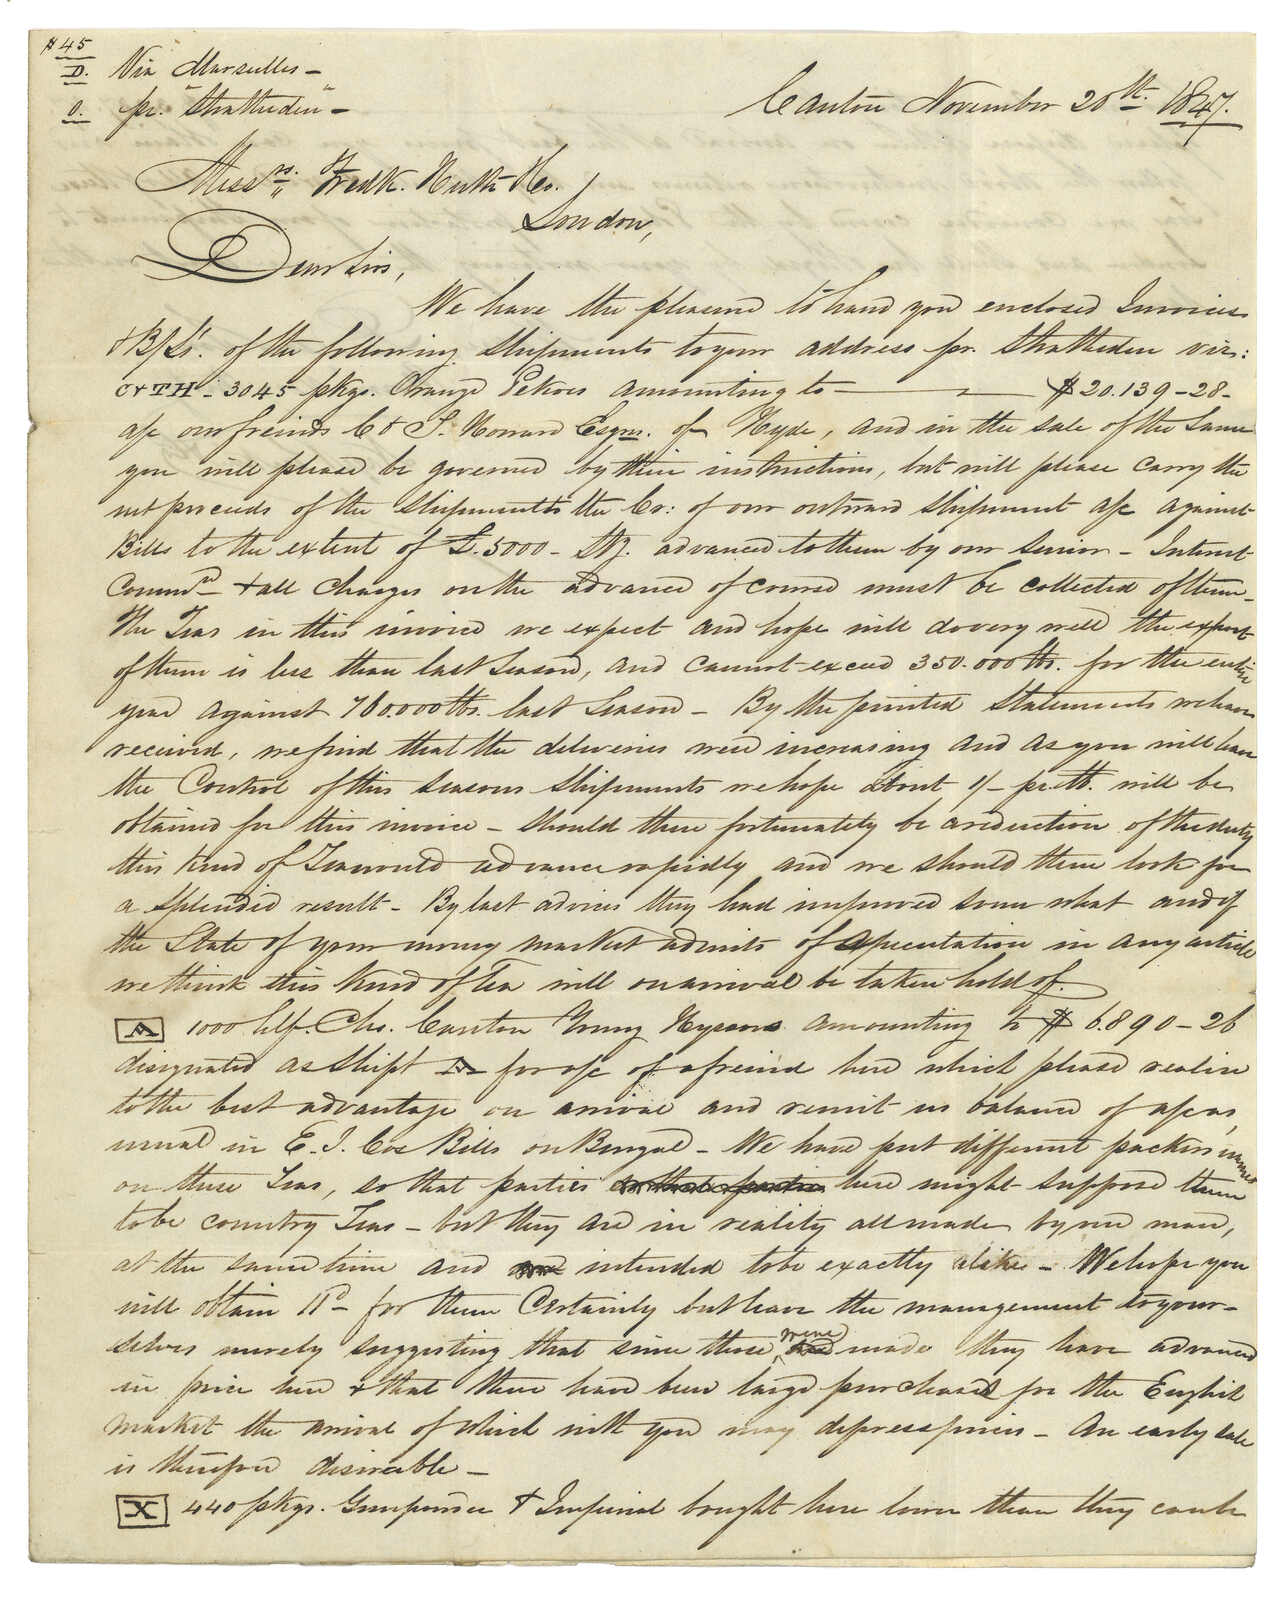 # 45
D. Via Marseilles -
O. pr. "Stratheden" -
Canton November 20th. 1847.
Messrs. Fredk. Huth & Co.
London,
Dear Sirs,
We have the pleasure to hand you enclosed Invoices
& B/Ls. of the following shipments to your address pr. Stratheden viz:
C&TH - 3045 pkgs. Orange Pekoes amounting to — $20.139-28-
a/c our friends C & T. Howard Esqrs. of Hyde, and in the sale of the same
you will please be governed by their instructions, but will please carry the
net proceeds of the shipment to the Cr: of our outward shipment a/c against
Bills to the extent of £.5000 - Stg. advanced to them by our senior - Interest
Commn - & all charges on the advance of course must be collected of them -
The Teas in this invoice we expect and hope will do very well the export
of them is less than last season, and cannot exceed 350.000 lbs. for the entire
year against 760.000 lbs. last season - By the printed statements we have
received, we find that the deliveries were increasing and as you will have
the Control of this seasons shipments we hope about 1/- pr. lb. will be
obtained for this invoice - Should there fortunately be a reduction of the duty
this kind of Tea would advance rapidly and we should then look for
a splendid result - By last advices they had improved somewhat and if
the State of your money market admits of speculation in any article
we think this kind of Tea will on arrival be taken hold of.
A 1000 hlf. Chs. Canton Young Hysons amounting to $ 6.890-26
designated as Shipt A for a/c of a friend here which please realize
to the best advantage on arrival and remit us balance of a/c as
usual in E. I. Cos Bills on Bengal - We have put different packers names
on these Teas, so that parties here might suppose them
to be country Teas - but they are in reality all made by one man,
at the same time and intended to be exactly alike - We hope you
will obtain 11d - for them Certainly but leave the management to your-
selves merely suggesting that since these were made they have advanced
in price here & that there have been large purchases for the English
market the arrival of which with you may depress prices - An early sale
is therefore desirable -
X 440 pkgs. Gunpowder & Imperial bought here lower than they can be